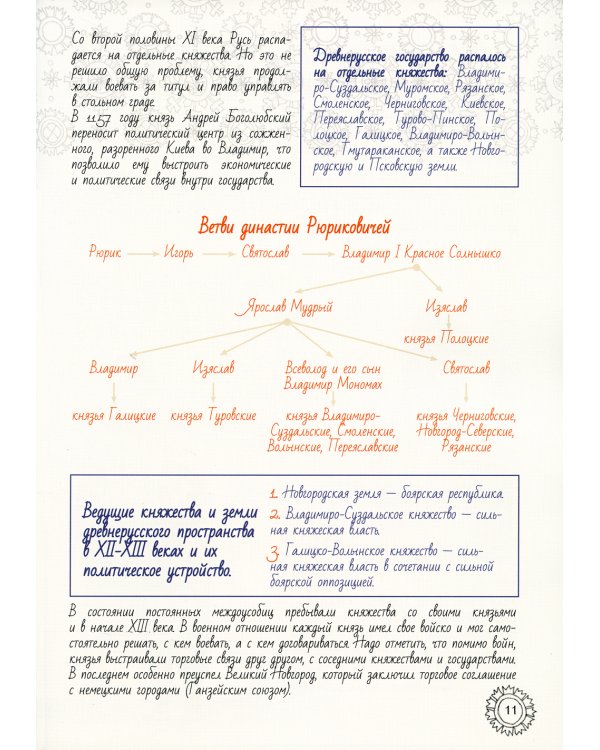 Со второй половины XI века Русь распа-
дается на отдельные княжества. Но это не
решило общую проблему, князья продол-
жали воевать за титул и право управлять
в стольном граде.
В 1157 году князь Андрей Боголюбский
переносит политический центр из сожжен-
ного, разоренного Киева во Владимир, что
позволило ему выстроить экономические
и политические связи внутри государства.
Древнерусское государство распалось
на отдельные княжества: Владими-
ро-Суздальское, Муромское, Рязанское,
Смоленское, Черниговское, Киевское,
Переяславское, Турово-Пинское, По-
лоцкое, Галицкое, Владимиро-Волын-
ское, Тмутараканское, а также Новго-
родскую и Псковскую земли.
Ветви династии Рюриковичей
Рюрик Игорь Святослав Владимир I Красное Солнышко
Ярослав Мудрый Изяслав
князья Полоцкие
Владимир Изяслав Всеволод и его сын Святослав
Владимир Мономах
князья Галицкие князья Туровские князья Владимиро- князья Черниговские,
Суздальские, Смоленские, Новгород-Северские,
Волынские, Переяславские Рязанские
Ведущие княжества и земли
древнерусского пространства
в XII–XIII веках и их
политическое устройство.
1. Новгородская земля — боярская республика.
2. Владимиро-Суздальское княжество — силь-
ная княжеская власть.
3. Галицко-Волынское княжество — силь-
ная княжеская власть в сочетании с сильной
боярской оппозицией.
В состоянии постоянных междоусобиц пребывали княжества со своими князьями
и в начале XIII века. В военном отношении каждый князь имел свое войско и мог само-
стоятельно решать, с кем воевать, а с кем договариваться. Надо отметить, что помимо войн,
князья выстраивали торговые связи друг другом, с соседними княжествами и государствами.
В последнем особенно преуспел Великий Новгород, который заключил торговое соглашение
с немецкими городами (Ганзейским союзом).
11